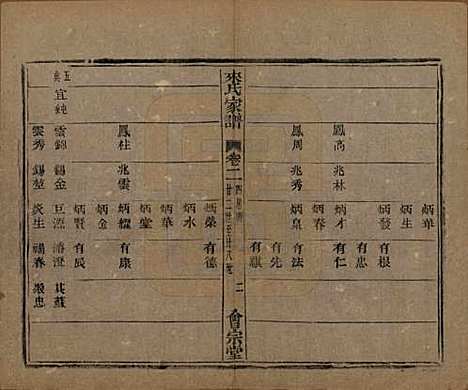 炳華
炳生
炳發 有根
有忠
鳳高 兆林 炳才 有仁
炳春
鳳周 兆秀 炳泉 有法
有先
有祺
來氏家譜 卷二 廿二世至廿八世 二 會宗堂
炳榮 有德
炳水
炳堂
鳳柱 兆雲 炳耀 有康
炳金
炳賢 有辰
宜純 雲錦 錫金 清澄
雲秀 錫堃 炎生 福春